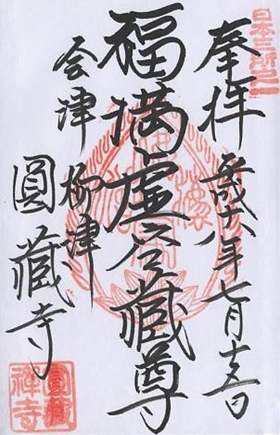 日本三所之一
奉拝 平成十八年七月十五日
福満虚空藏尊
会津 柳津
圓藏寺
圓藏禅寺